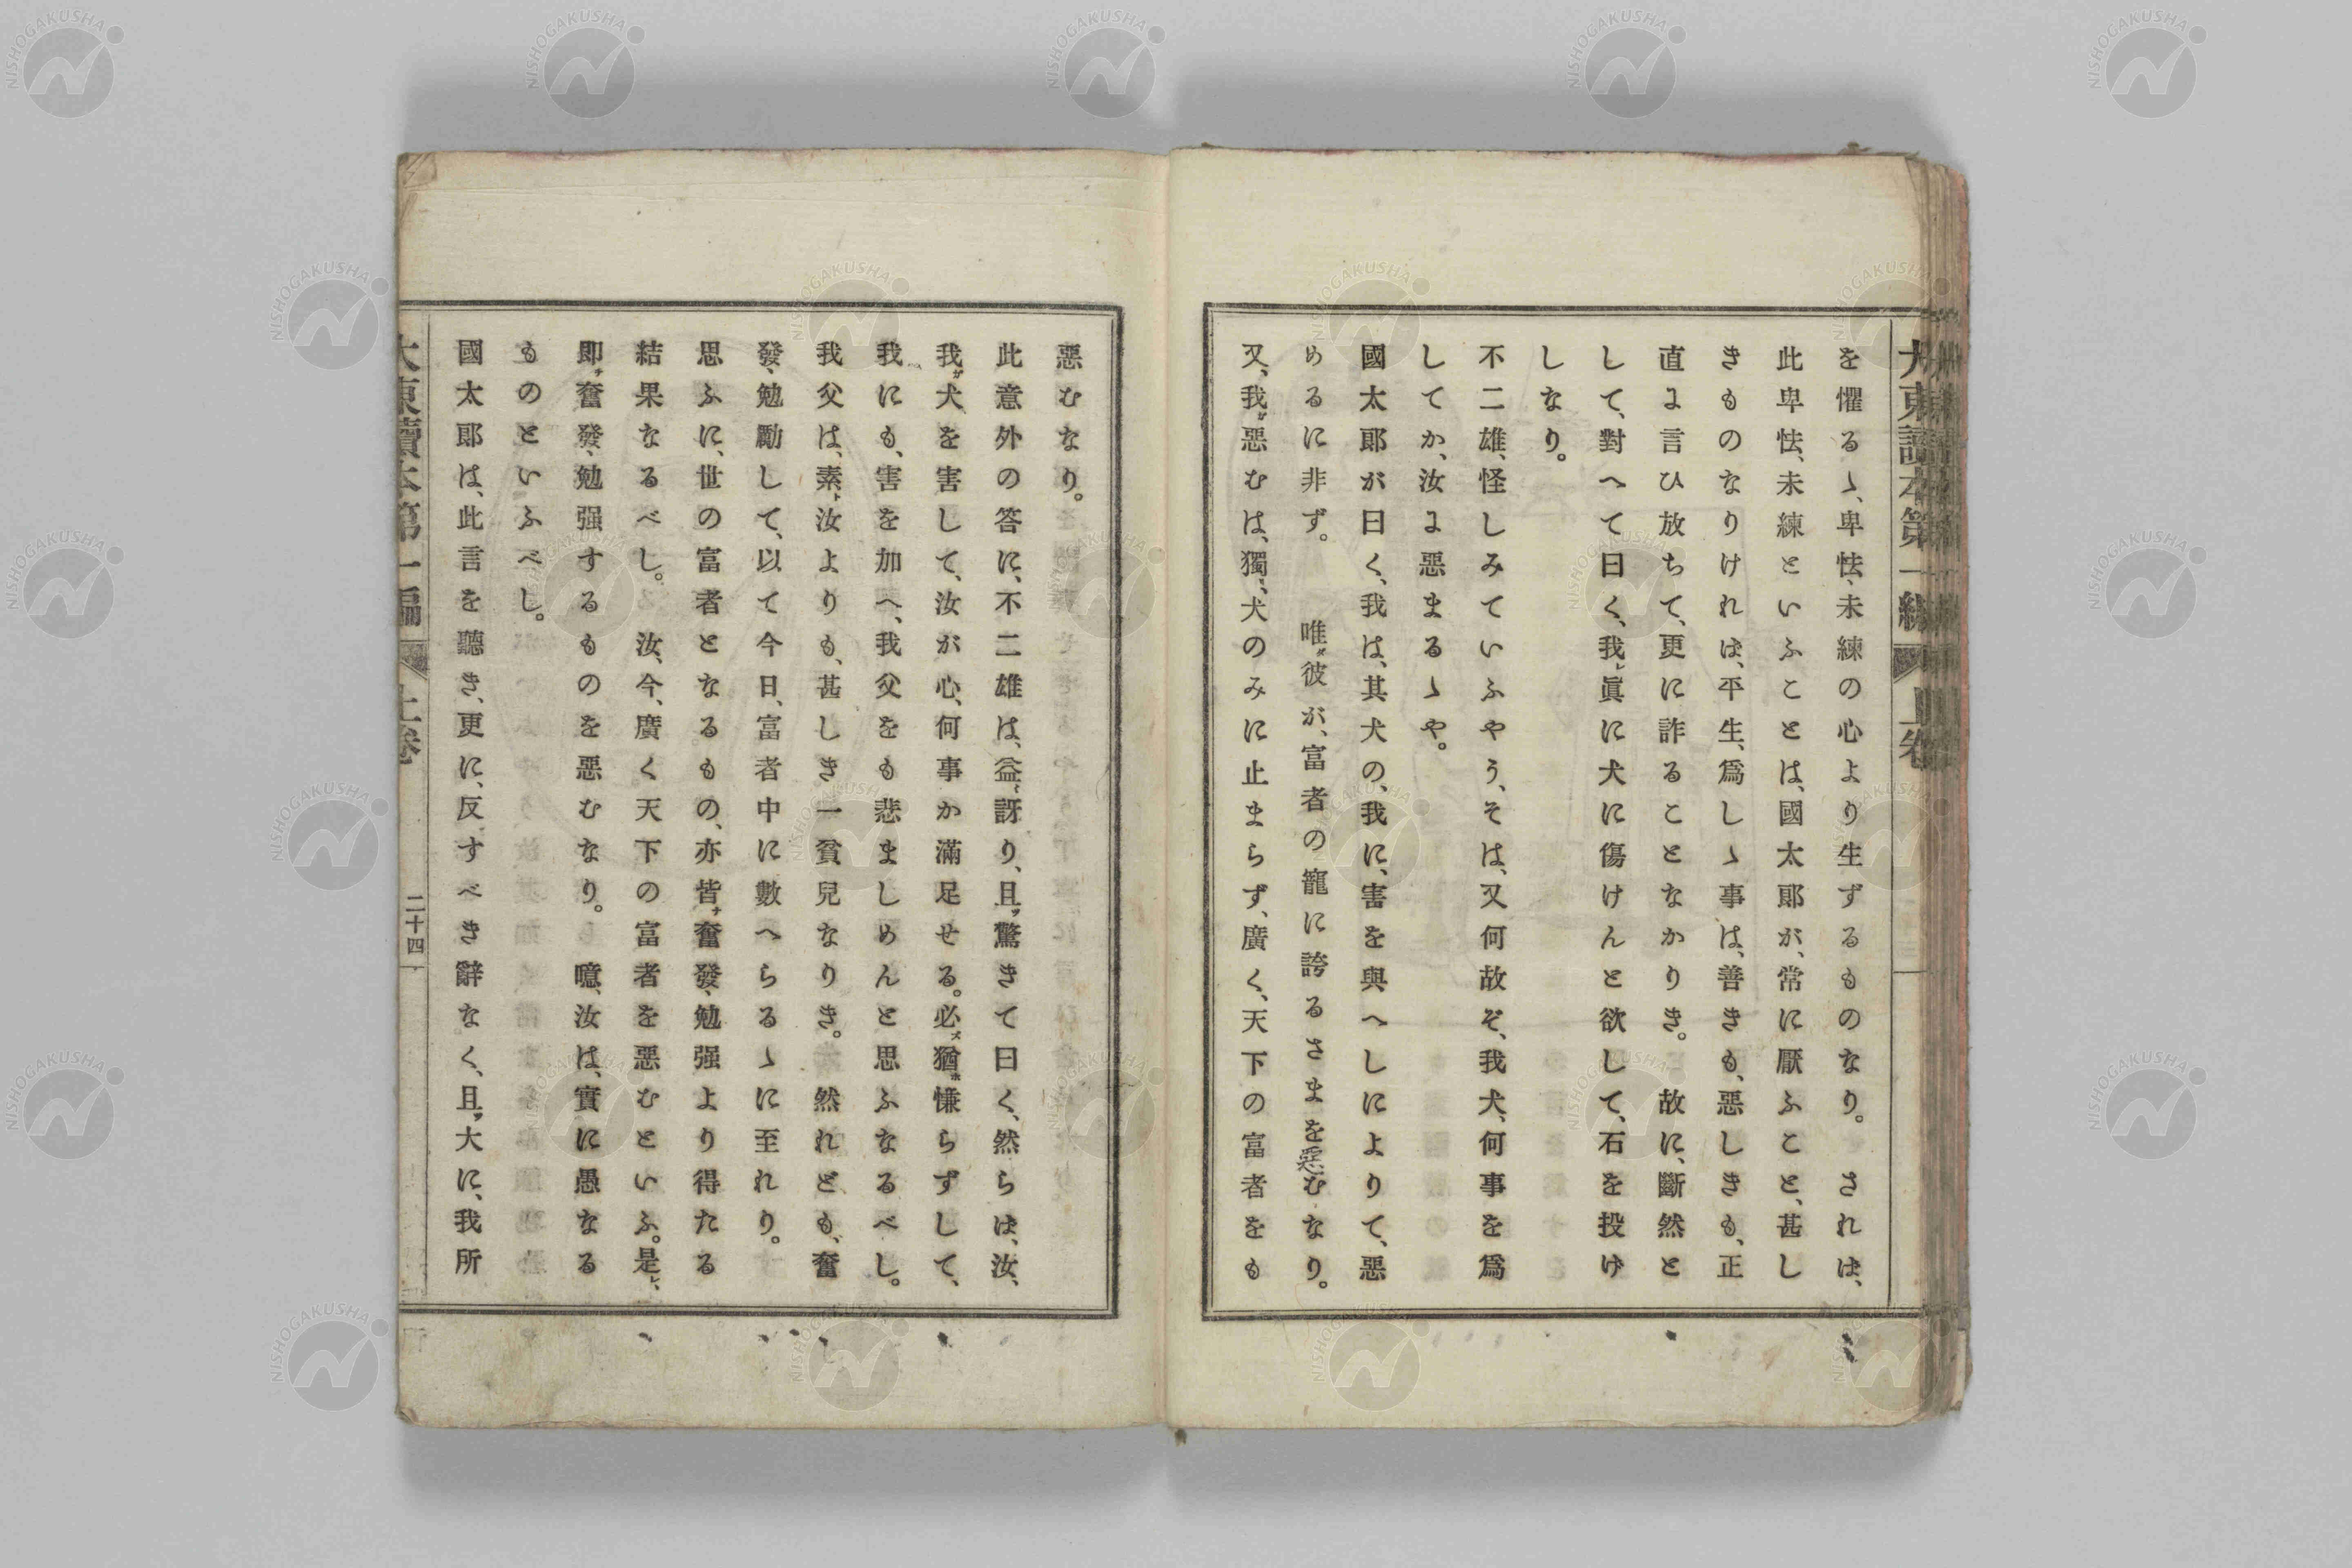 大東讀本第一編 上卷
を懼るゝ、卑怯、未練の心より生ずるものなり。 されば、
此卑怯、未練といふことは、國太郎が、常に厭ふこと、甚し
きものなりければ、平生、爲しゝ事は、善きも、惡しきも、正
直に言ひ放ちて、更に詐ることなかりき。 故に、斷然と
して、對へて曰く、我レ眞に犬に傷けんと欲して、石を投げ
しなり。
不二雄、怪しみていふやう、そは、又何故ぞ、我犬、何事を爲
してか、汝に惡まるゝや。
國太郎が曰く、我は、其犬の、我に、害を與へしによりて、惡
めるに非ず。 唯ダ彼が、富者の寵に誇るさまを惡むなり。
又、我ガ惡むは、獨リ、犬のみに止まらず、廣く、天下の富者をも
惡むなり。
此意外の答に、不二雄は、益〻訝り、且ツ驚きて曰く、然らば、汝、
我ガ犬を害して、汝が心、何事か滿足せる。必ズ猶ホ慊らずして、
我にも、害を加へ、我父をも悲ましめんと思ふなるべし。
我父は、素ト汝よりも、甚しき一貧兒なりき。 然れども、奮
發、勉勵して、以て今日、富者中に數へらるゝに至れり。
思ふに、世の富者となるもの、亦皆ナ奮發、勉强より得たる
結果なるべし。 汝、今、廣く天下の富者を惡むといふ。是レ、
即チ奮發、勉强するものを惡むなり。 噫、汝は、實に愚なる
ものといふべし。
國太郎は、此言を聽き、更に、反すべき辭なく、且ツ大に、我所
大東讀本第一編 上卷 二十四
NISHOGAKUSHA